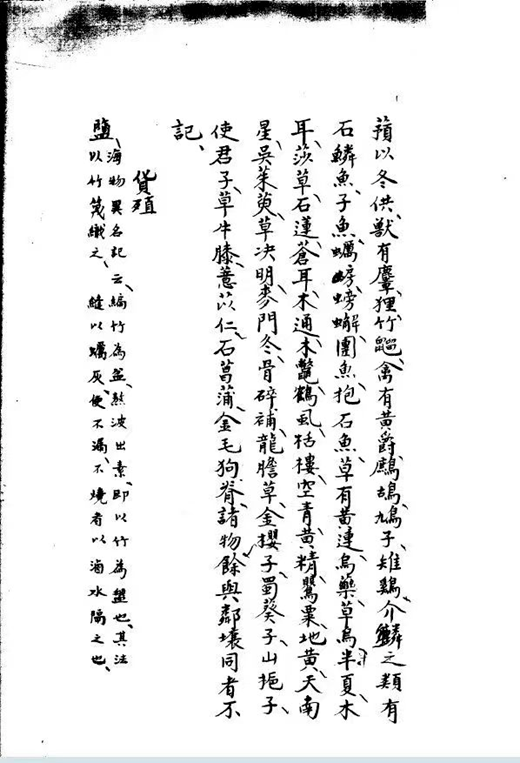 蘋以冬供、獸有麞、狸、竹䶉、禽有黃爵、鷓鴣、鳩子、雉鷄、介鱗之類有
石鱗魚、子魚、蠣、蟛螃蠏、團魚、抱石魚、草有黃連、烏藥、草烏、半夏、木
耳、莎草、石蓮、蒼耳、木通、木鱉、鶴虱、栝樓、空青、黃精、鶯粟、地黃、天南
星、吳茱萸、草决明、麥門冬、骨碎補、龍膽草、金櫻子、蜀葵子、山梔子、
使君子、草牛膝、薏苡仁、石菖蒲、金毛狗脊、諸物餘與鄰壤同者不
記、
貨殖
鹽、海物異名記云、編竹為盆、熬波出素、即以竹為盤也、其法
以竹篾織之、縫以蠣灰、便不漏、不燒者以滷水隔之也、